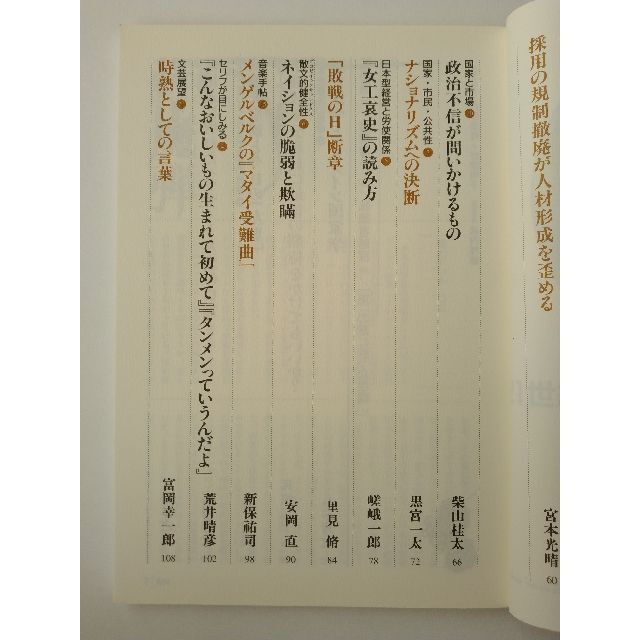 採用の規制撤廃が人材形成を歪める
宮本光晴 60
国家と市場
政治不信が問いかけるもの
柴山桂太 66
国家・市民・公共性
ナショナリズムへの決断
黒宮一太 72
日本型経営と労使関係
『女工哀史』の読み方
嵯峨一郎 78
「敗戦の日」断章
里見脩 84
散文的健全性
ネイションの脆弱と欺瞞
安岡直 90
音楽手帖
メンゲルベルクの『マタイ受難曲』
新保祐司 98
セリフが目にしみる
『こんなおいしいもの生まれて初めて』『タンメンっていうんだよ』
荒井晴彦 102
文芸展望
時熟としての言葉
富岡幸一郎 108